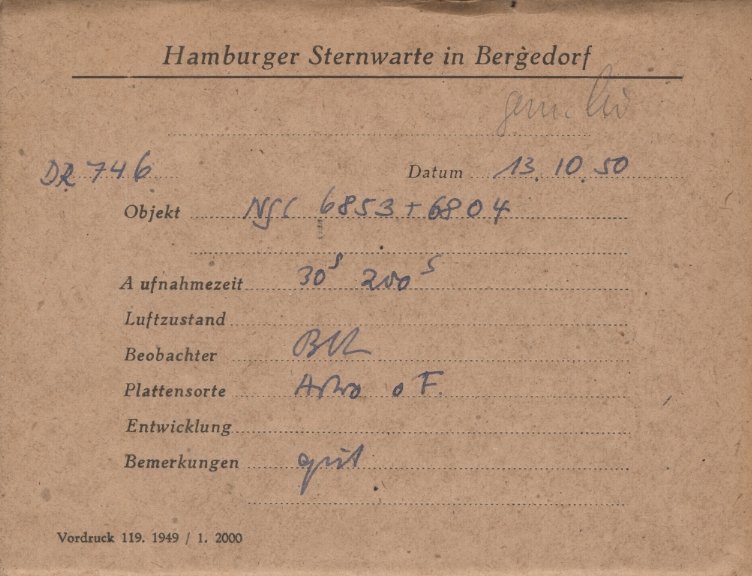 Hamburger Sternwarte in Bergedorf
DR 746 Datum 13. 10. 50
Objekt NGC 6853 + 6804
Aufnahmezeit 30s 200s
Luftzustand
Beobachter
Plattensorte Astro o F.
Entwicklung
Bemerkungen gut
Vordruck 119. 1949 / 1. 2000